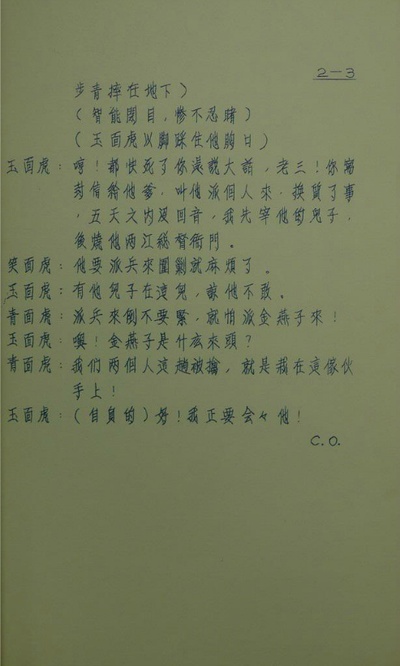 2-3
步青摔在地下)
(智能閉目,慘不忍睹)
(玉面虎以腳踩住他胸口)
玉面虎:哼!都快死了你還說大話,老三!你寫
封信給他爹,叫他派個人來,換貿了事
,五天之內沒回音,我先宰他的兒子,
後燒他兩江總督衙門。
笑面虎:他要派兵來圍剿就麻煩了。
玉面虎:有他兒子在這兒,諒他不敢。
青面虎:派兵來倒不要緊,就怕派金燕子來!
玉面虎:噢!金燕子是什么來頭?
青面虎:我們兩個人這趟被擒,就是栽在這傢伙
手上!
玉面虎:(自負的)好!我正要会々他!
C.O.